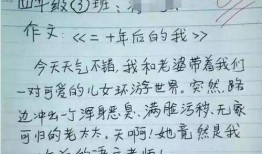 四年级③班:
作文:《二十年后的我》
今天天气不错,我和老婆带着我们
一对可爱的儿女环游世界。突然,路
边冲出一个浑身恶臭、满脸污秽、无家
可归的老太太。天啊!她竟然是我